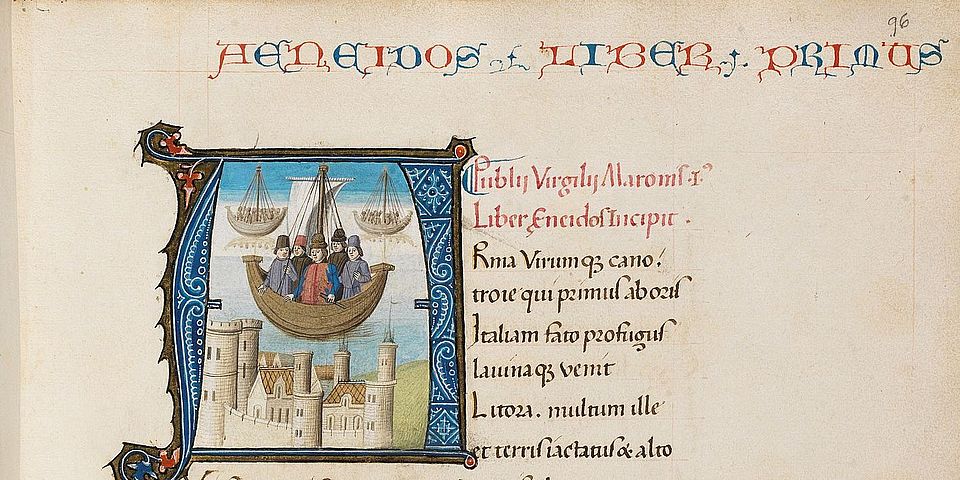 96
AENEIDOS LIBER .I. PRIMUS
Publij Virgilij Maronis .I.
Liber Eneidos Incipit .
Rma Virumq; cano.
troie qui primus ab oris
Italiam fato profugus
lauinaq; venit
Litora. multum ille
et terris iactatus & alto